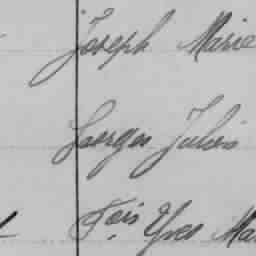 Joseph Marie
Georges Julien
Fois Yves Ma